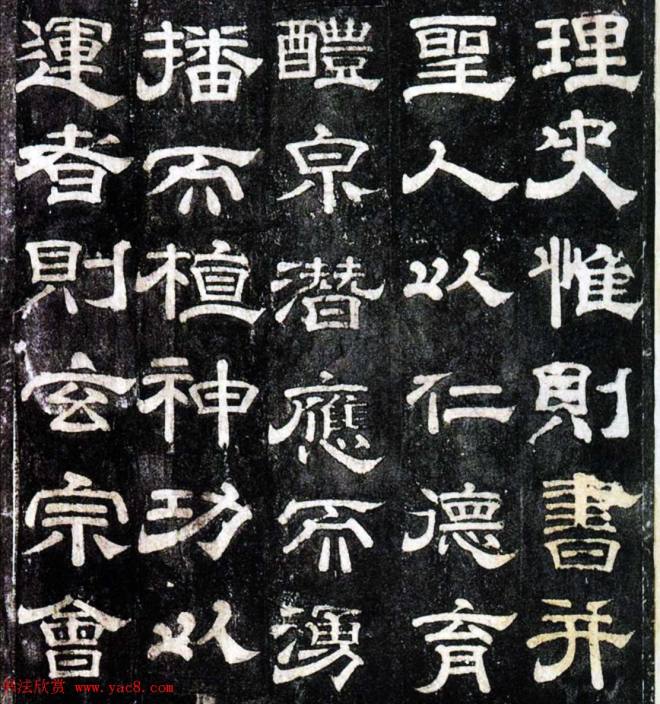 理史惟則書并
聖人以仁德育
醴泉潛應而湧
播而植神功以
運者則玄宗會
书法欣赏 www.yac8.com